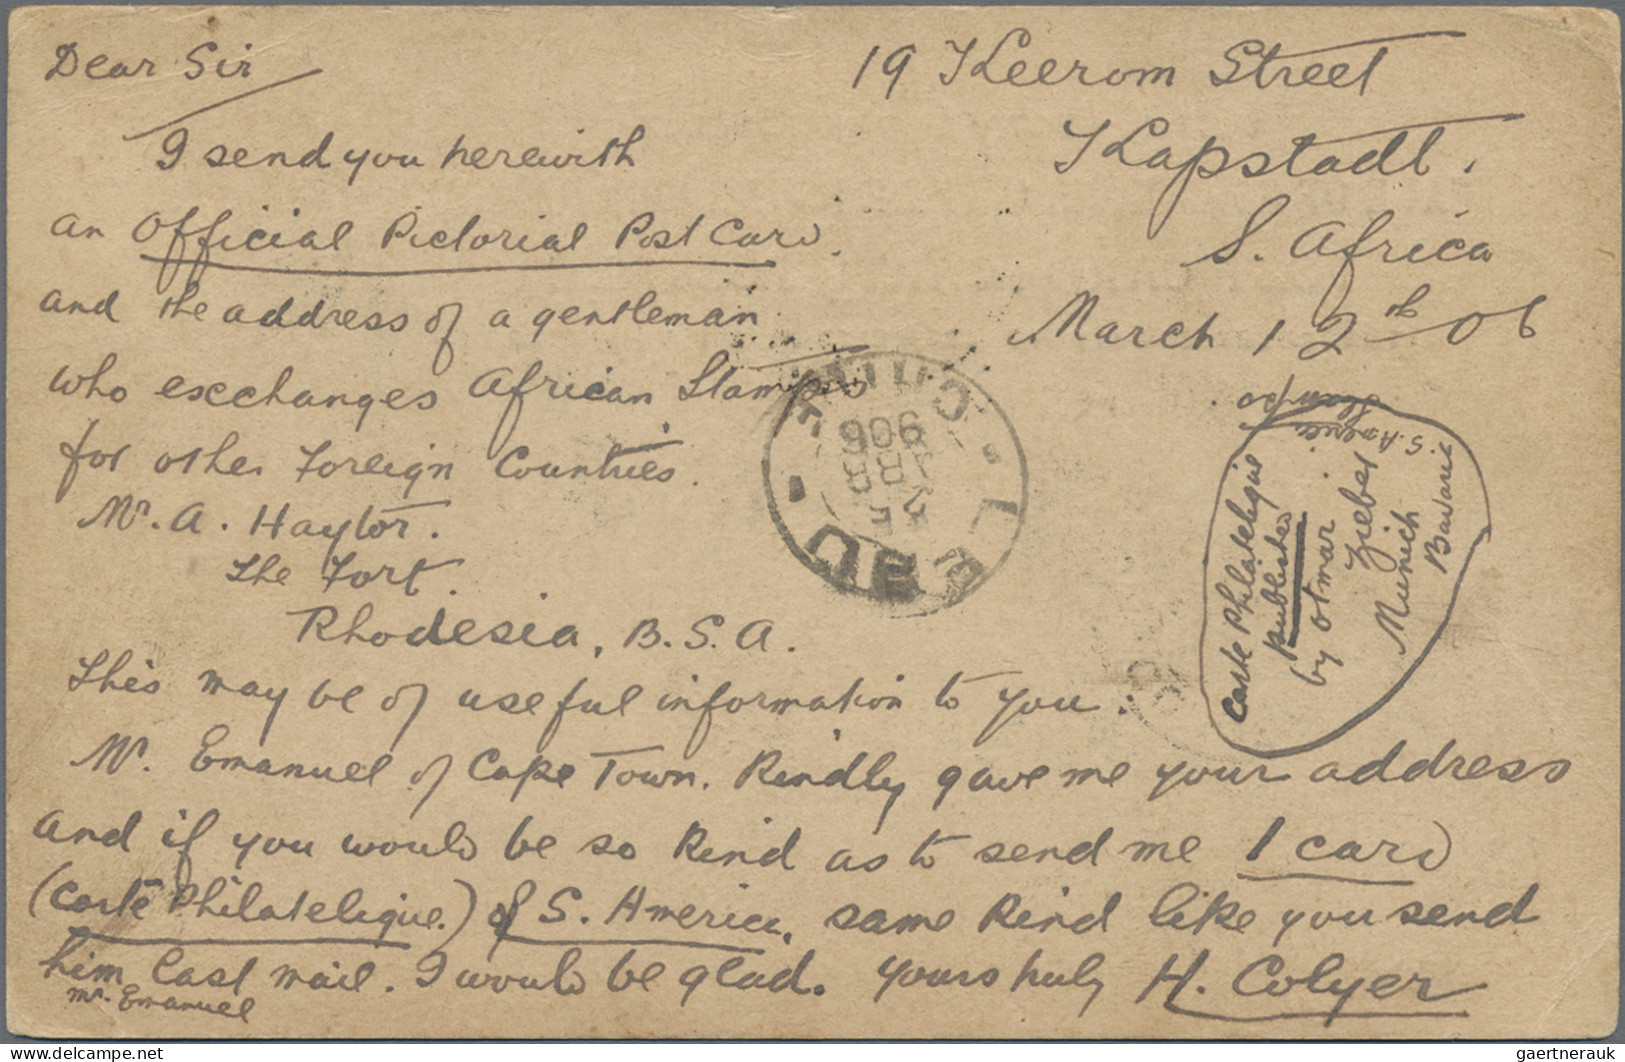 Dear Sir
19 Keerom Street
Kapstadt.
S. Africa
March 12th 06
I send you herewith
an Official Pictorial Post Card.
and the address of a gentleman
who exchanges African Stamps
for other Foreign Countries.
Mr. A. Haytor.
The Fort.
Rhodesia, B.S.A.
This may be of useful information to you.
Mr. Emanuel of Cape Town. Kindly gave me your address
and if you would be so kind as to send me 1 card
(Carte Philatelique.) of S. America. same kind like you send
him last mail. I would be glad. Yours truly H. Colyer
Mr. Emanuel
Carte Philatelique
published
by Otmar
Zieber
Munich
Bavaria
Stamps
906
delcampe.net
gaertnerauk